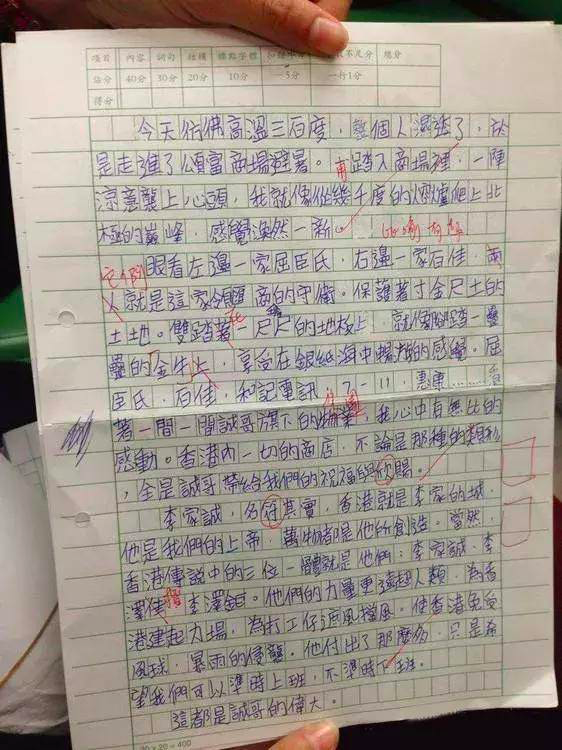 項目 內容 詞句 結構 標點字體 總分
佔分 40分 30分 20分 10分 5分 一行1分
得分
今天彷彿高溫三百度，整個人濕透了，於
是走進了頌富商場避暑。甫踏入商場裡，一陣
涼意襲上心頭，我就像從幾千度的熔爐爬上北
極的巔峰，感覺煥然一新。
它們
眼看左邊一家屈臣氏，右邊一家百佳，兩
人就是這家今商的守衛。保護著寸金尺土的
土地。雙踏著一尺尺的地板上，就像腳踏一疊
疊的金牛上，享受在銀紙海中暢游的感覺。屈
臣氏，百佳，和記電訊，7-11，惠康……看
著一間一間誠哥旗下的，我心中有無比的
感動。香港內一切的商店，不論是那種的類形
，全是誠哥帶給我們的祝福與欣賜。
李家誠，名符其實，香港就是李家的城，
他是我們的上帝，萬物都是他所創造。當然，
香港傳說中的三位一體就是他們：李家誠、李
澤楷、李澤鉅。他們的力量更強超人類，為香
港建起力場，為打工仔庇風擋風。使香港免受
風球，暴雨的侵襲。他付出了那麼多，只是希
望我們可以準時上班，不準時下班。
這都是誠哥的偉大。
20 × 20 = 400